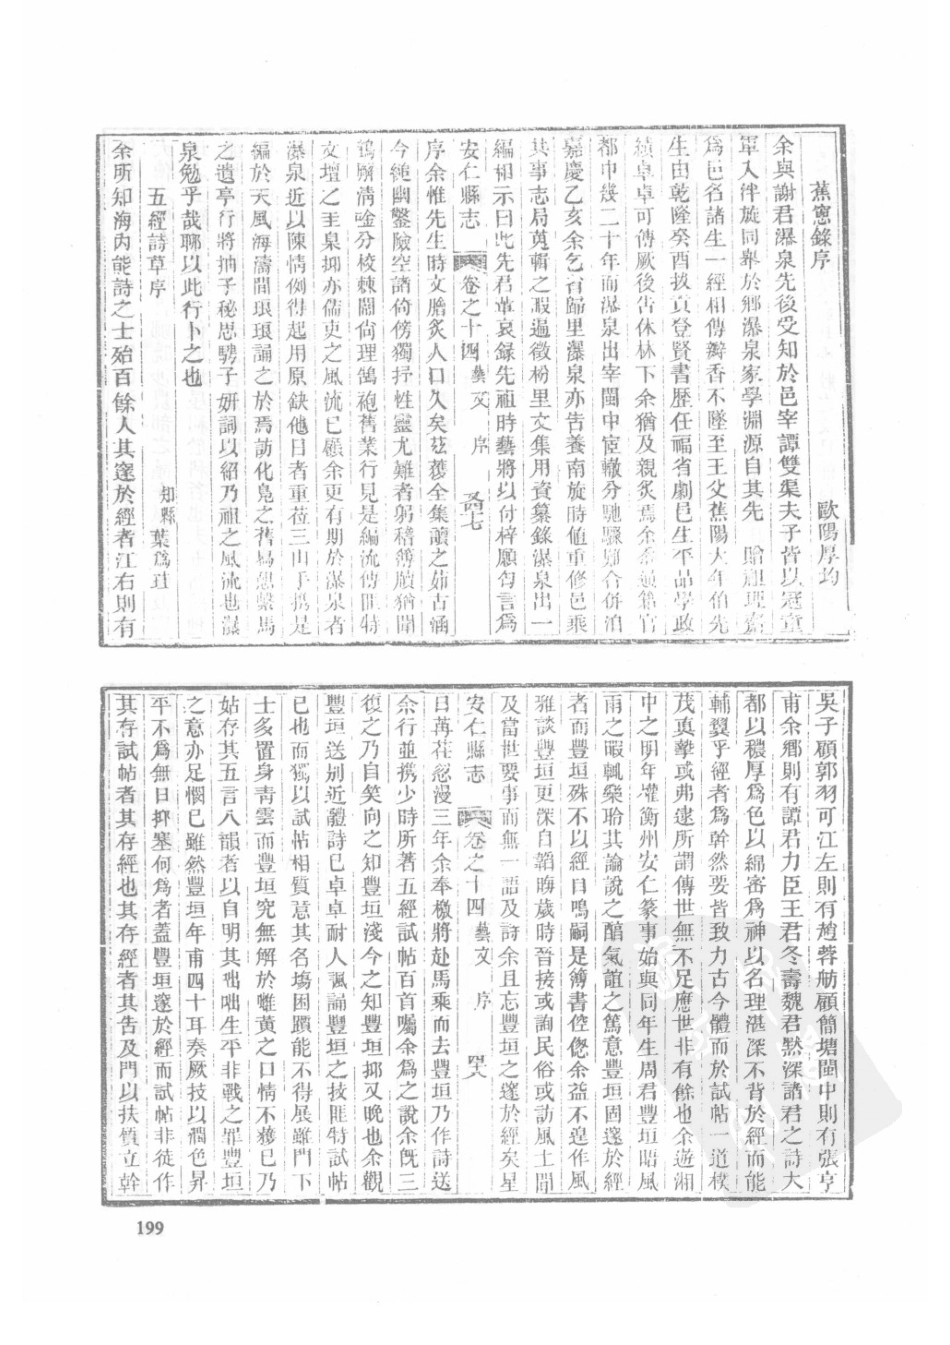 蕉窻錄序
歐陽厚均
余與謝君瀑泉先後受知於邑宰譚雙渠夫子皆以冠童
軍入泮旋同舉於鄉瀑泉家學淵源自其先 貽祖理齋
爲邑名諸生一經相傳瓣香不墜至王父蕉陽大年伯先
生由乾隆癸酉拔貢登賢書歷任福省劇邑生平品學政
績卓卓可傳厥後告休林下余猶及親炙焉余通籍官
都中幾二十年而瀑泉出宰閩中宦轍分馳驟難合併洎
嘉慶乙亥余乞省歸里瀑泉亦告養南旋時值重修邑乘
共事志局蒐輯之暇遍徵枌里文集用資纂錄瀑泉出一
編相示曰此先君革哀錄先祖時藝將以付梓願匄言爲
安仁縣志 卷之十四 藝文 序 四七
序余惟先生時文膾炙人口久矣茲獲全集讀之茹古涵
今縋幽鑿險空諸倚傍獨抒性靈尤難者躬稽簿牘猶聞
鶴厨清唫分校棘闈尙理鵠袍舊業行見是編流傳開特
文壇之圭臬抑亦儒吏之風流已願余更有期於瀑泉者
瀑泉近以陳情例得起用原缺他日者重莅三山手携是
編於天風海濤間琅琅誦之於焉訪化鳧之舊舄想繫馬
之遺亭行將抽子秘思騁子妍詞以紹乃祖之風流也瀑
泉勉乎哉聊以此行卜之也
五經詩草序
知縣葉爲珪
余所知海內能詩之士殆百餘人其邃於經者江右則有
吳子頋郭羽可江左則有趙蓉舫顧簡塘閩中則有張亨
甫余鄉則有譚君力臣王君冬壽魏君默深諸君之詩大
都以穠厚爲色以綿密爲神以名理湛深不背於經而能
輔翼乎經者爲幹然要皆致力古今體而於試帖一道樸
茂眞摯或弗逮所謂傳世無不足應世非有餘也余遊湘
中之明年墉衡州安仁篆事始與同年生周君豐垣晤風
雨之暇輒樂聆其論說之醕氣誼之篤意豐垣固邃於經
者而豐垣殊不以經自鳴嗣是簿書倥傯余益不遑作風
雅談豐垣更深自韜晦歲時晉接或詢民俗或訪風土間
及當世要事而無一語及詩余且忘豐垣之邃於經矣星
安仁縣志 卷之十四 藝文 序 四八
日苒荏忽漫三年余奉檄將赴馬乘而去豐垣乃作詩送
余行並携少時所著五經試帖百首囑余爲之說余旣三
復之乃自笑向之知豐垣淺今之知豐垣抑又晚也余觀
豐垣送別近體詩已卓卓耐人諷誦豐垣之技匪特試帖
已也而獨以試帖相質意其名場困躓能不得展雖門下
士多置身青雲而豐垣究無解於雌黃之口情不獲已乃
姑存其五言八韻者以自明其咄咄生平非戰之罪豐垣
之意亦足憫已雖然豐垣年甫四十耳奏厥技以潤色昇
平不爲無日抑塞何爲者蓋豐垣邃於經而試帖非徒作
其存試帖者其存經也其存經者其告及門以扶質立幹
199